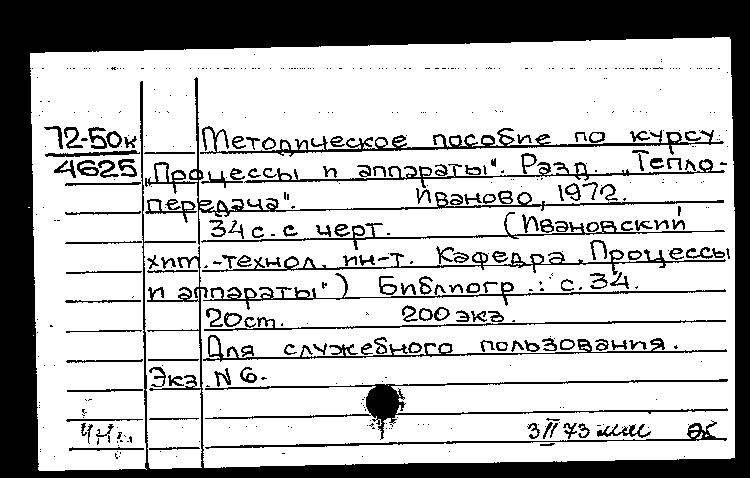 72-50к Методическое пособие по курсу
4625 „Процессы и аппараты". Разд. „Тепло-
передача". Иваново, 1972.
34 с. с черт. (Ивановский
хим.-технол. ин-т. Кафедра „Процессы
и аппараты") Библиогр.: с. 34.
20 cm. 200 экз.
Для служебного пользования.
Экз. N 6.
3 II 73